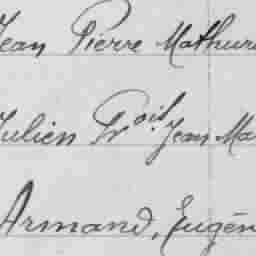 Jean Pierre Mathuri
Julien Fr ois Jean Ma
Armand, Eugén